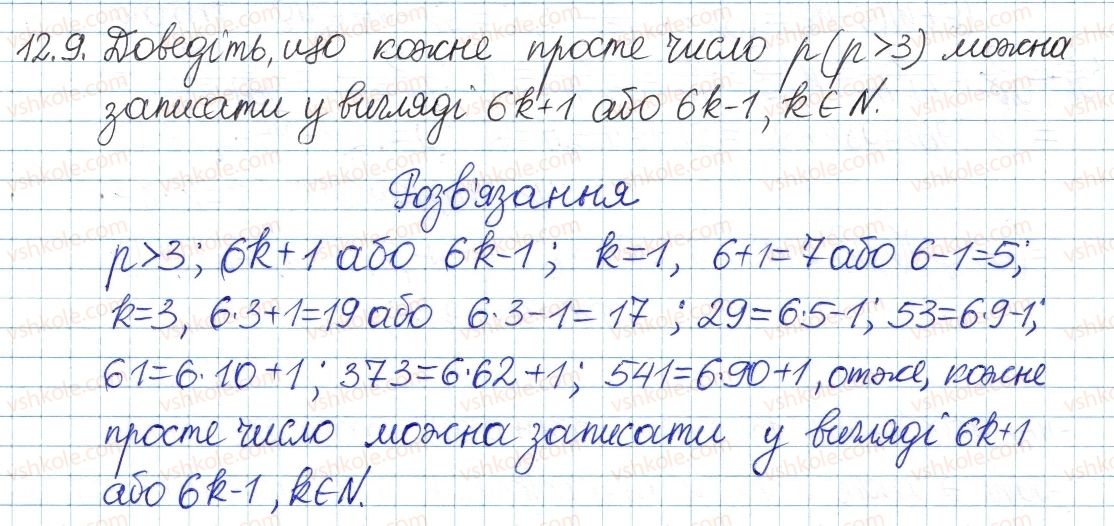 12.9. Доведіть, що кожне просте число p (p>3) можна
записати у вигляді 6k+1 або 6k-1, k∈N.
Розв'язання
p>3; 6k+1 або 6k-1; k=1, 6+1=7 або 6-1=5;
k=3, 6·3+1=19 або 6·3-1=17; 29=6·5-1; 53=6·9-1;
61=6·10+1; 373=6·62+1; 541=6·90+1, отже, кожне
просте число можна записати у вигляді 6k+1
або 6k-1, k∈N.